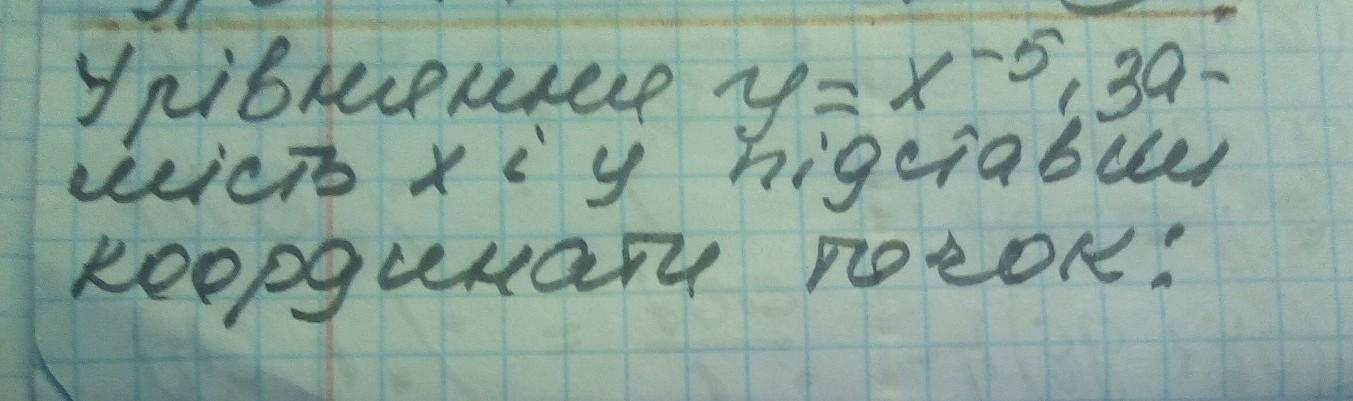 Урівняння y = x⁻⁵, за-
мість х і у підставим
координати точок: